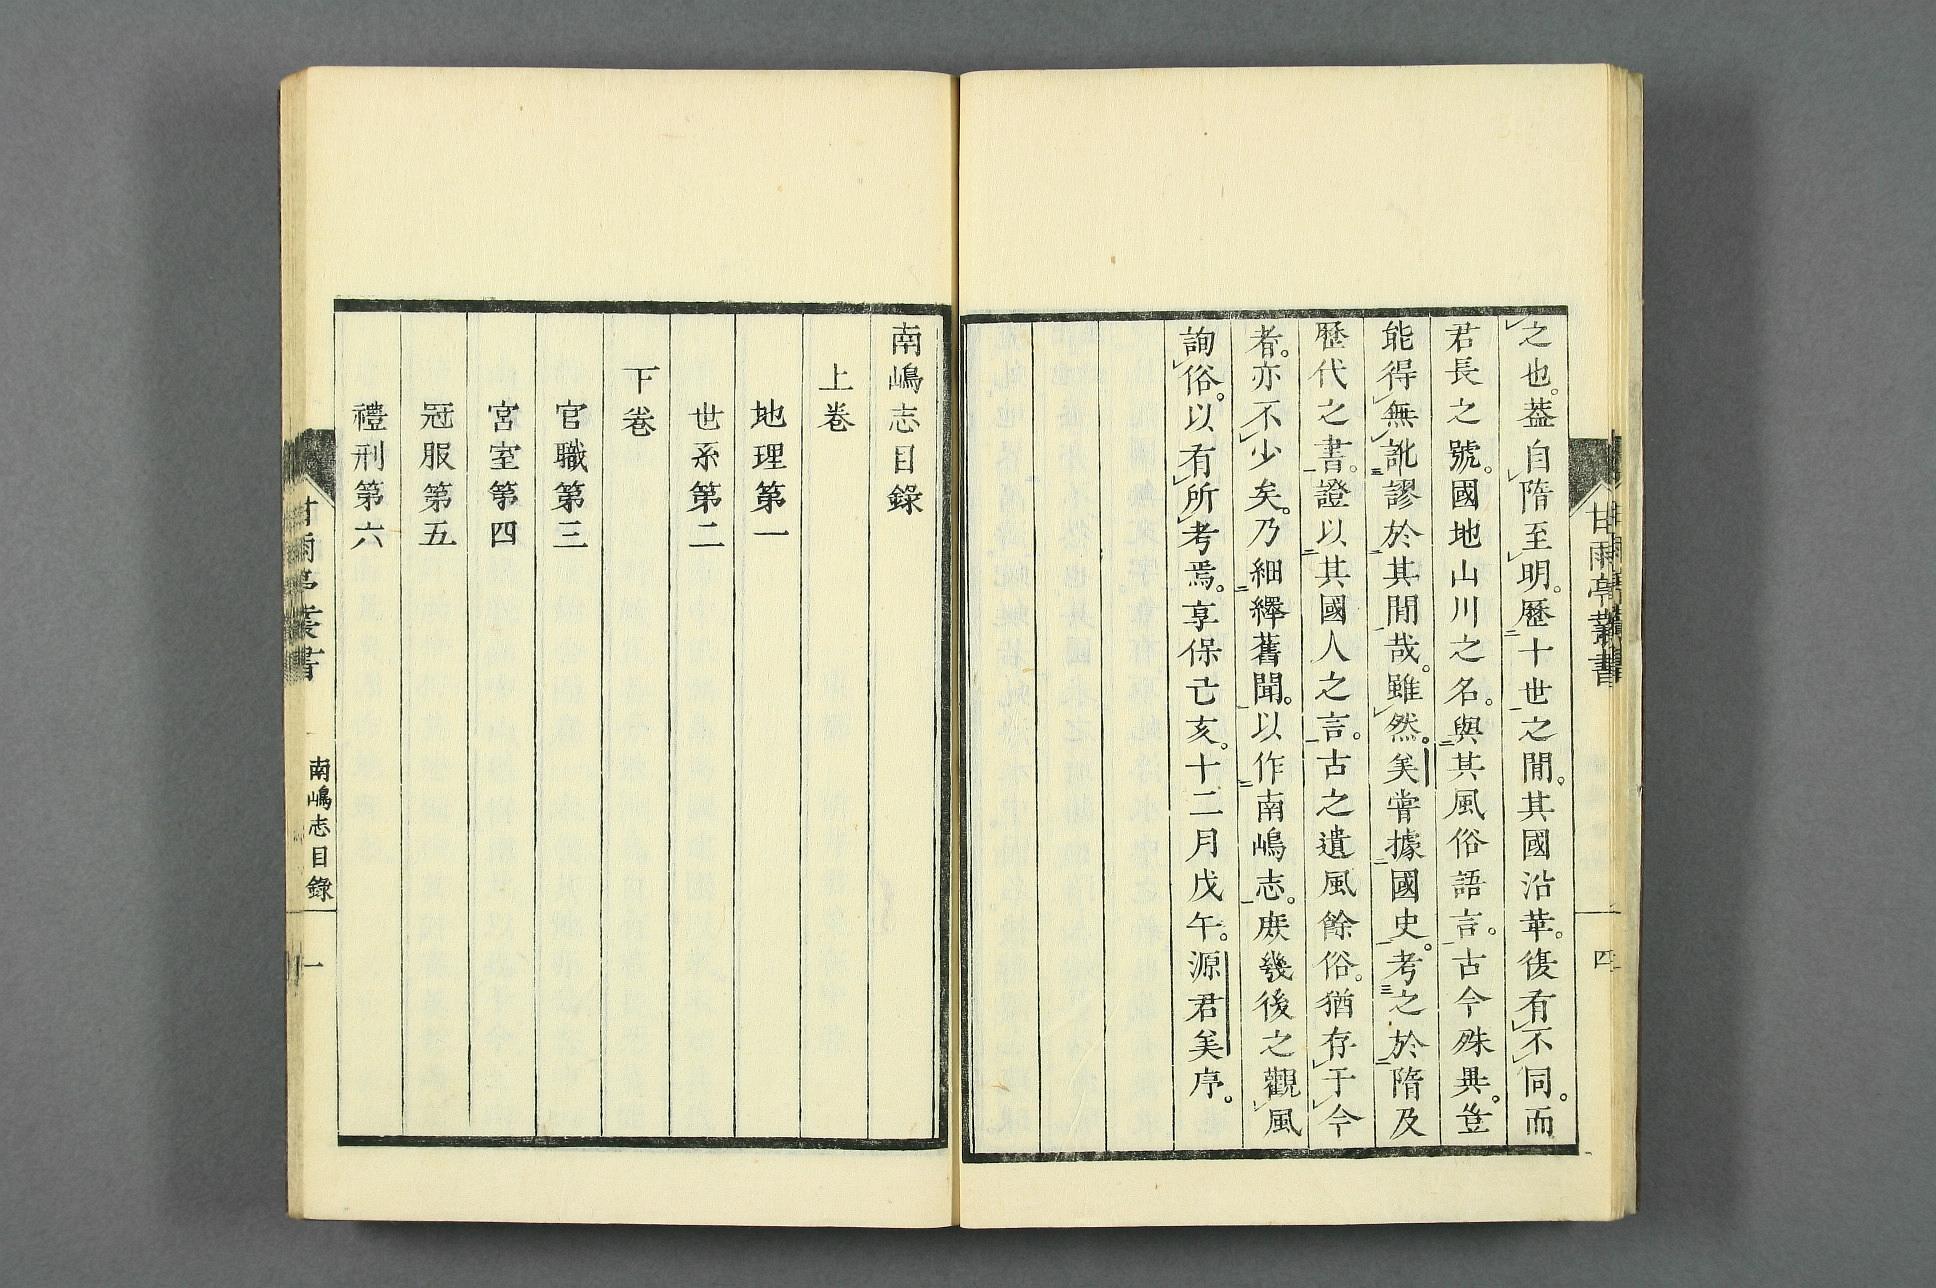 之也。葢自隋至明。歷十世之閒。其國沿革。復有不同。而
君長之號。國地山川之名。與其風俗語言。古今殊異。豈
能得無訛謬於其閒哉。雖然。美嘗據國史。考之於隋及
歷代之書。證以其國人之言。古之遺風餘俗。猶存于今
者。亦不少矣。乃細繹舊聞。以作南嶋志。庻幾後之觀風
詢俗。以有所考焉。享保己亥。十二月戊午。源君美序。
甘雨亭叢書
四
南嶋志目錄
上卷
地理第一
世系第二
下卷
官職第三
宮室第四
冠服第五
禮刑第六
甘雨亭叢書
南嶋志目錄
一